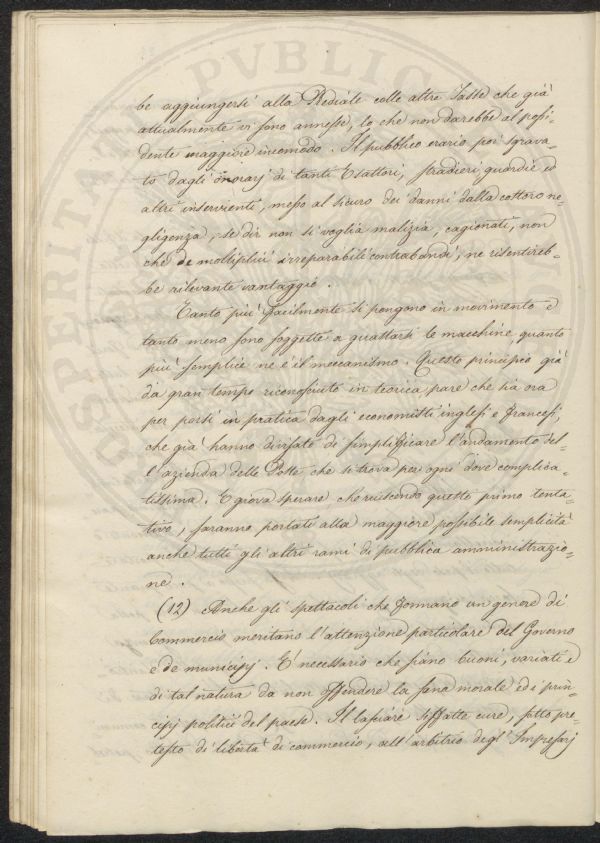 be aggiungersi alla Prediale colle altre Tasse che già
attualmente vi sono annesse, lo che non darebbe al possi-
dente maggiore incomodo. Il pubblico erario poi sgrava-
to dagli onorarj di tanti Esattori, stradieri guardie ed
altri inservienti, messo al sicuro dei danni dalla cottoro ne-
gligenza, se dir non si voglia malizia, cagionati, non
che de moltiplici irreparabili contrabandi, ne risentireb-
be rilevante vantaggio.
Tanto più facilmente si pongono in movimento e
tanto meno sono soggette a guastarsi le macchine, quanto
più semplice ne è il meccanismo. Questo principio già
da gran tempo riconosciuto in teorica pare che sia ora
per porsi in pratica dagli economisti inglesi e francesi,
che già hanno divisato di simplificare l'andamento del-
l'azienda delle Poste che si trova per ogni dove complica-
tissima. E giova sperare che riuscendo questo primo tenta-
tivo, saranno portati alla maggiore possibile semplicità
anche tutti gli altri rami di pubblica amministrazio-
ne.
(12) Anche gli spettacoli che formano un genere di
Commercio meritano l'attenzione particolare del Governo
e de municipj. E' necessario che siano buoni, variati e
di tal natura da non offendere la sana morale ed i prin-
cipj politici del paese. Il lasciare siffatte cure, sotto pre-
testo di libertà di commercio, all'arbitrio degl'Impresarj
PROSPERITATI PVBLIC